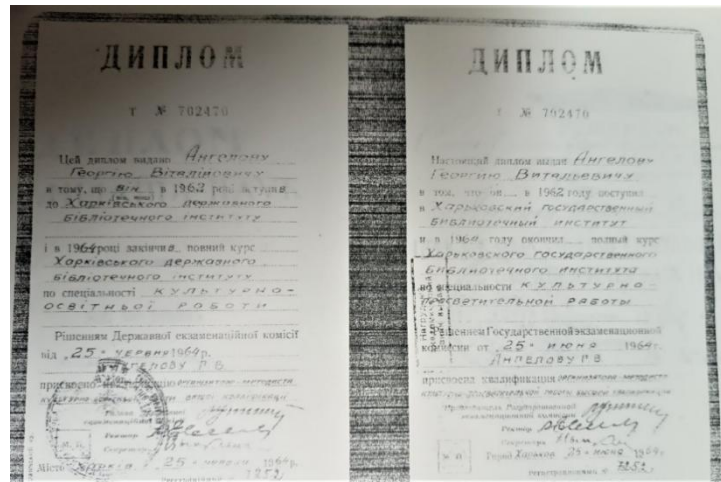 ДИПЛОМ
Т № 702470
Цей диплом видано Ангелову
Георгію Віталійовичу
в тому, що він в 1962 році вступив
до Харківського державного
бібліотечного інституту
і в 1964 році закінчив повний курс
Харківського державного
бібліотечного інституту
по спеціальності культурно-
освітньої роботи
Рішенням Державної екзаменаційної комісії
від „25" червня 1964р.
Ангелову Г В
присвоєно
Ректор
Місто Харків 25 1964р.
7252
ДИПЛОМ
Т № 702470
Настоящий диплом выдан Ангелову
Георгию Витальевичу
в том, что он в 1962 году поступил
в Харьковский государственный
библиотечный институт
и в 1964 году окончил полный курс
Харьковского государственного
библиотечного института
по специальности культурно-
просветительной работы
Решением Государственной экзаменационной
комиссии от „25" июня 1964г.
Ангелову Г В
присвоена квалификация организатора-методиста
культурно-просветительной работы высшей квалификации
Председатель Государственной
экзаменационной комиссии
Ректор
Секретарь
М. П.
Город Харьков 25 июня 1964г.
регистрационный № 7252